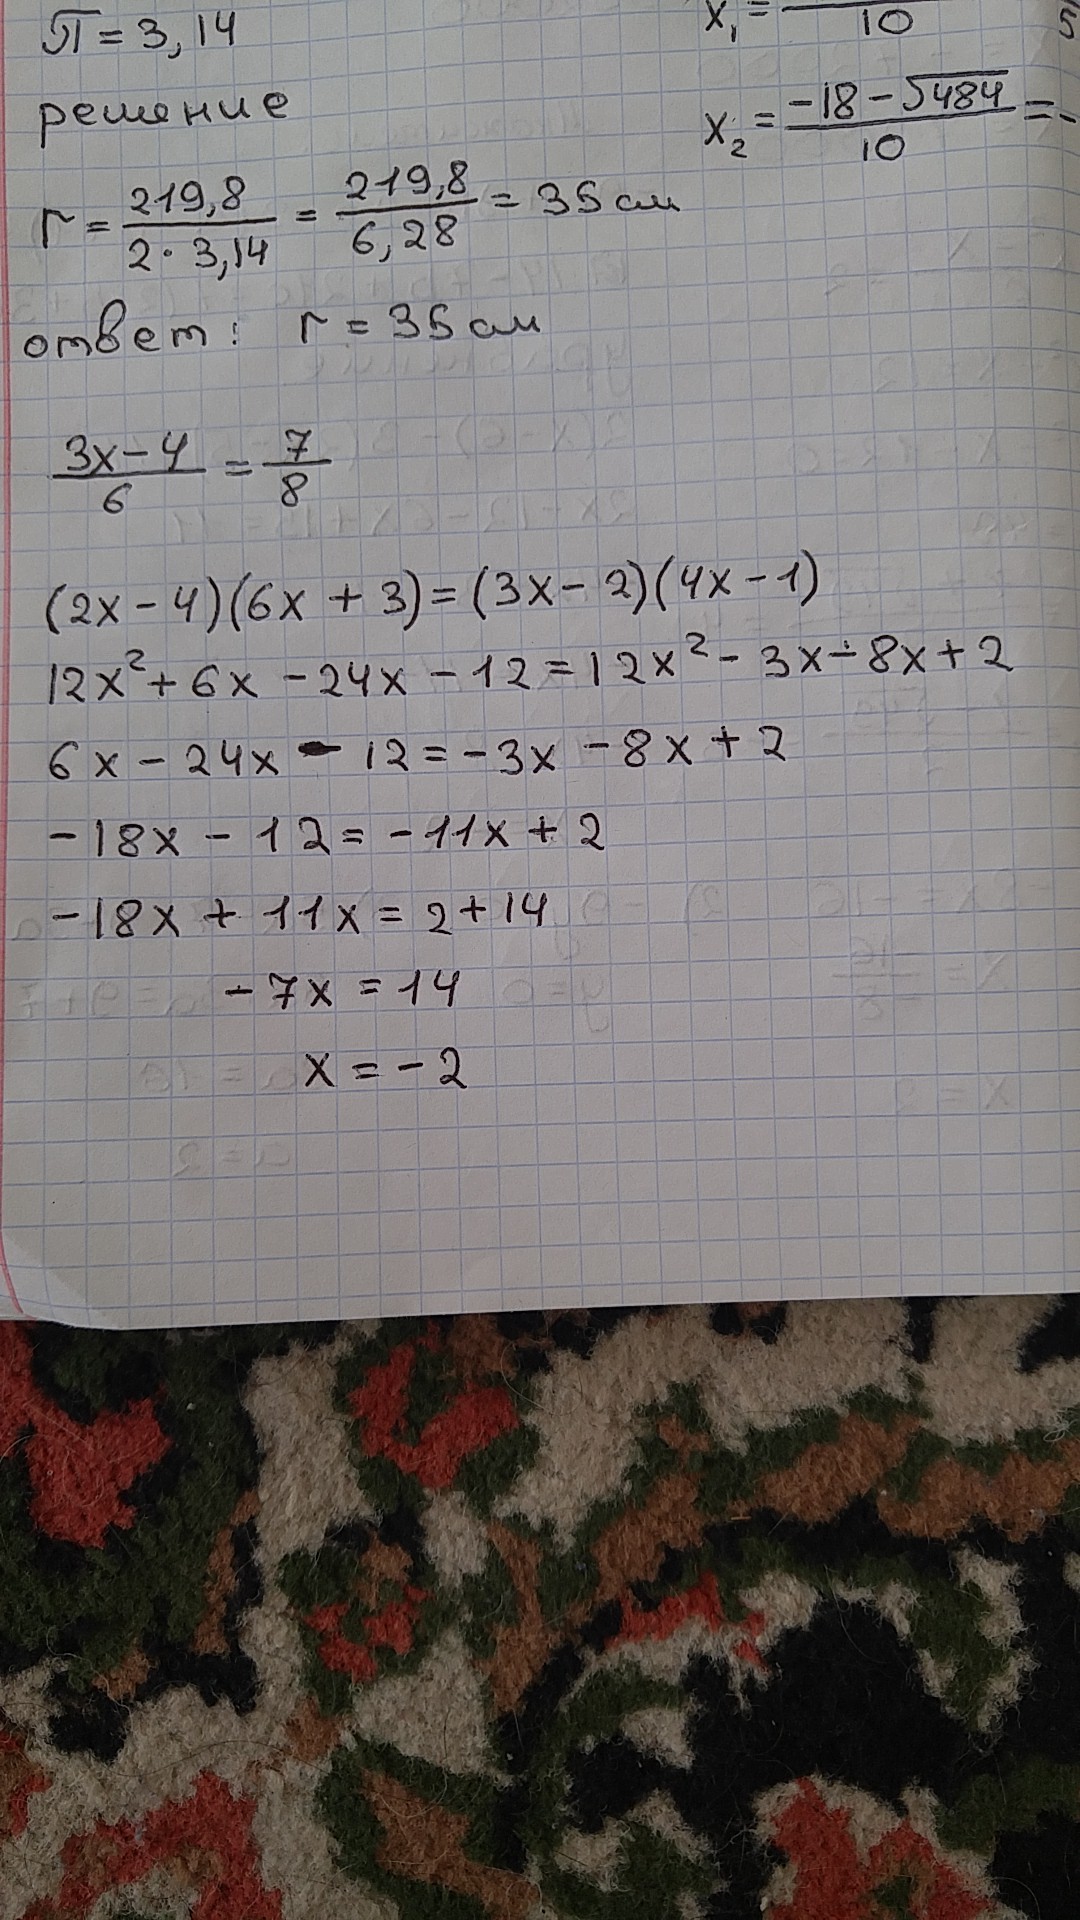 π = 3,14
решение
r = 219,8 / 2 · 3,14 = 219,8 / 6,28 = 35 см
ответ: r = 35 см
x₁ = / 10
x₂ = -18 - √484 / 10 = -
3x - 4 / 6 = 7 / 8
(2x - 4)(6x + 3) = (3x - 2)(4x - 1)
12x² + 6x - 24x - 12 = 12x² - 3x - 8x + 2
6x - 24x - 12 = -3x - 8x + 2
-18x - 12 = -11x + 2
-18x + 11x = 2 + 14
-7x = 14
x = -2